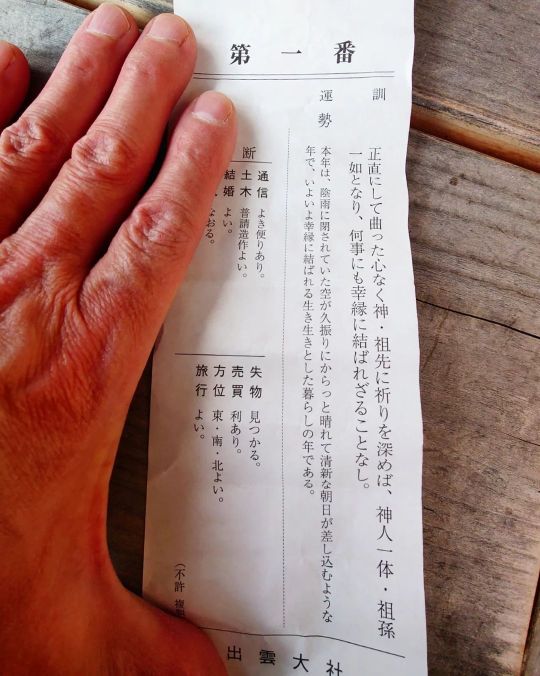 第一番
訓
正直にして曲った心なく神・祖先に祈りを深めば、神人一体・祖孫
一如となり、何事にも幸縁に結ばれざることなし。
運勢
本年は、陰雨に閉されていた空が久振りにからっと晴れて清新な朝日が差し込むような
年で、いよいよ幸縁に結ばれる生き生きとした暮らしの年である。
断
通信 よき便りあり。
土木 普請造作よい。
結婚 よい。
なおる。
失物 見つかる。
売買 利あり。
方位 東・南・北よい。
旅行 よい。
(不許 複
出雲大社